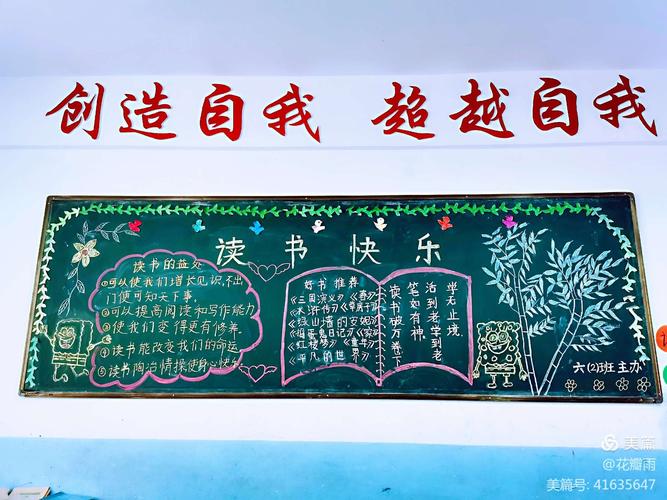 创造自我 超越自我
读书快乐
读书的益处
①可以使我们增长见识,不出
门便可知天下事.
②可以提高阅读和写作能力
③使我们变得更有修养.
④读书能改变我们的命运
⑤读书陶冶情操使身心快乐.
好书推荐
《三国演义》《春》
《水浒传》《草房子》
《绿山墙的安妮》
《红楼梦》《童年》
《平凡的世界》
学无止境.
活到老学到老
笔如有神.
读书破万卷下
六(2)班主办
美篇
@花瓣雨
美篇号: 41635647